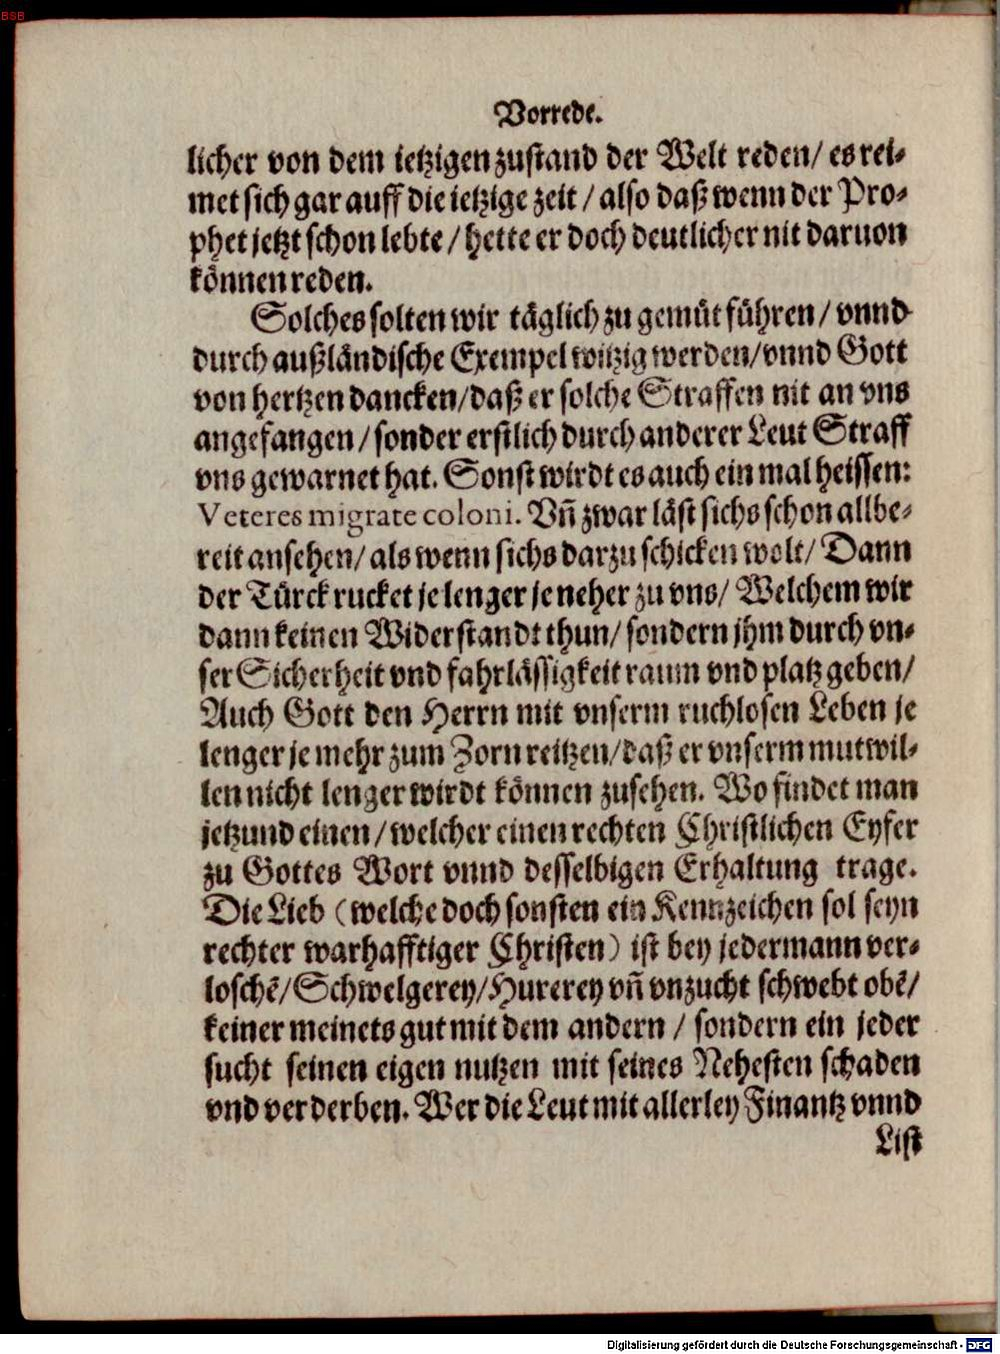 BSB
Vorrede.
licher von dem ietzigen zustand der Welt reden/ es rei-
met sich gar auff die ietzige zeit / also daß wenn der Pro-
phet jetzt schon lebte / hette er doch deutlicher nit daruon
können reden.
Solches solten wir täglich zu gemüt führen / vnnd
durch außländische Exempel witzig werden/vnnd Gott
von hertzen dancken/daß er solche Straffen nit an vns
angefangen / sonder erstlich durch anderer Leut Straff
vns gewarnet hat. Sonst wirdt es auch ein mal heissen:
Veteres migrate coloni. Vñ zwar läst sichs schon allbe-
reit ansehen/ als wenn sichs darzu schicken wolt/ Dann
der Türck rucket je lenger je neher zu vns/ Welchem wir
dann keinen Widerstandt thun/ sondern jhm durch vn-
ser Sicherheit vnd fahrlässigkeit raum vnd platz geben/
Auch Gott den Herrn mit vnserm ruchlosen Leben je
lenger je mehr zum Zorn reitzen/daß er vnserm mutwil-
len nicht lenger wirdt können zusehen. Wo findet man
jetzund einen/welcher einen rechten Christlichen Eyfer
zu Gottes Wort vnnd desselbigen Erhaltung trage.
Die Lieb (welche doch sonsten ein Kennzeichen sol seyn
rechter warhafftiger Christen) ist bey jedermann ver-
loschē/Schwelgerey/Hurerey vñ vnzucht schwebt obē/
keiner meinets gut mit dem andern / sondern ein jeder
sucht seinen eigen nutzen mit seines Nehesten schaden
vnd verderben. Wer die Leut mit allerley Finantz vnnd
List
Digitalisierung gefördert durch die Deutsche Forschungsgemeinschaft - DFG